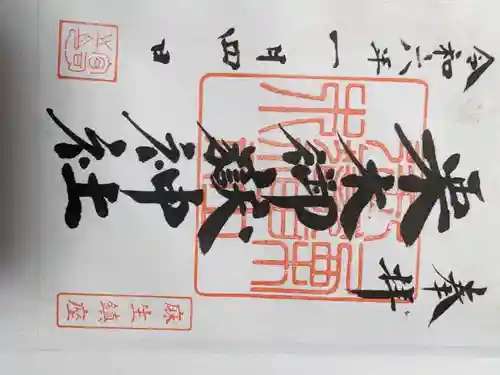 奉拝
栗木御嶽神社
令和六年一月四日
麻生鎮座